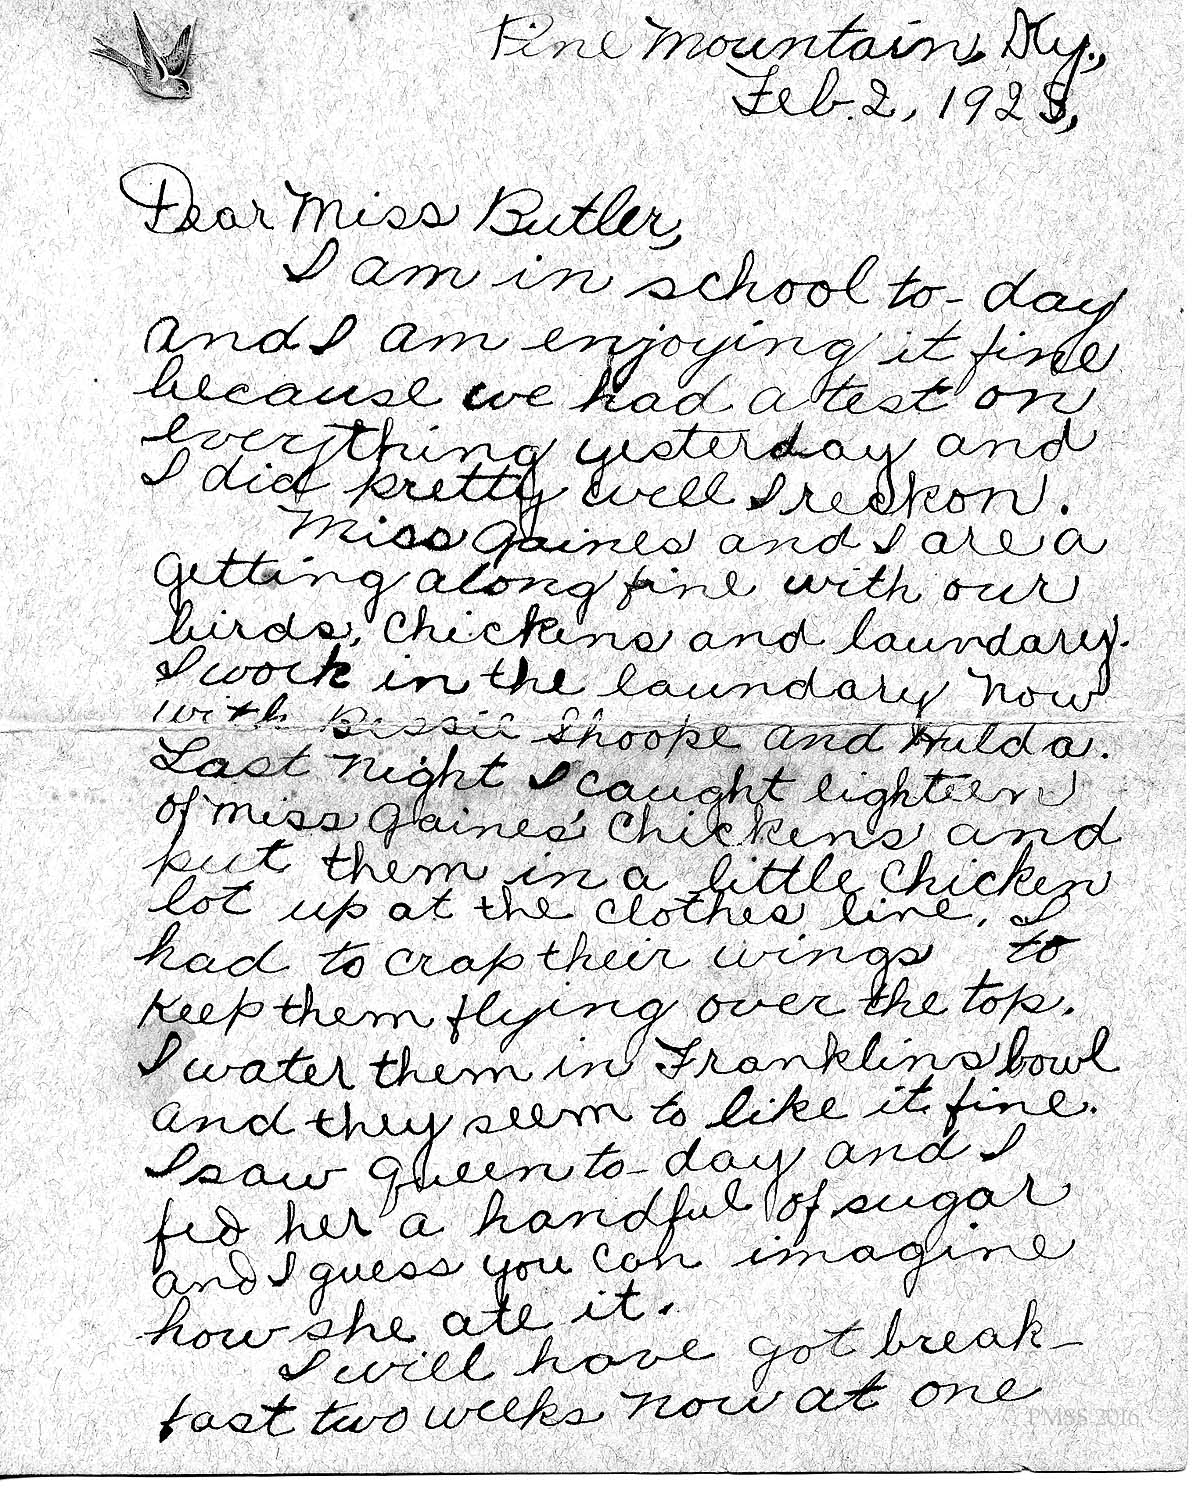 Pine Mountain, Ky.,
Feb. 2, 1928,
Dear Miss Butler,
I am in school to-day
and I am enjoying it fine
because we had a test on
everything yesterday and
I did pretty well I reckon.
Miss Gaines and I are a
getting along fine with our
birds, chickens and laundary.
I work in the laundary now
with Bessie Shoope and Hulda.
Last night I caught eighteen
of Miss Gaines' chickens and
put them in a little chicken
lot up at the clothes line. I
had to crop their wings to
keep them flying over the top.
I water them in Franklins bowl
and they seem to like it fine.
I saw Queen to-day and I
fed her a handful of sugar
and I guess you can imagine
how she ate it.
I will have got break-
fast two weeks now at one
PMSS 2016